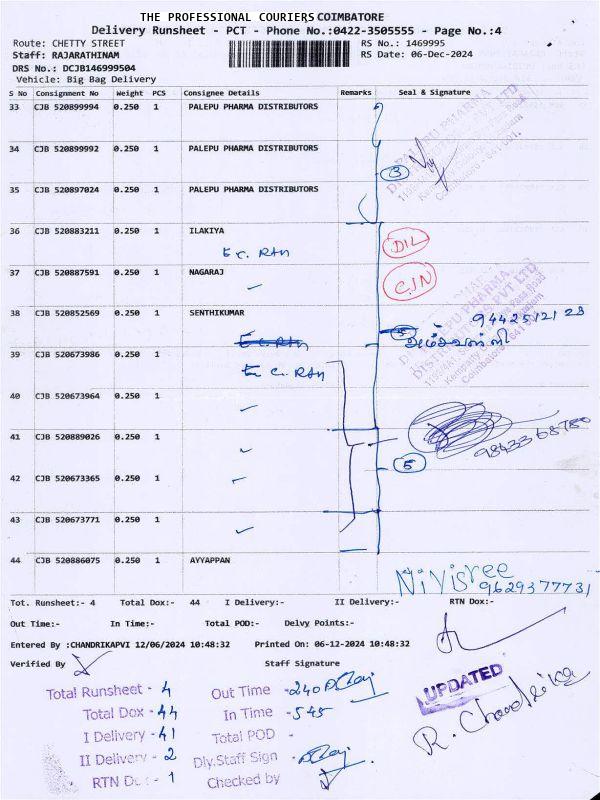 THE PROFESSIONAL COURIERS COIMBATORE
Delivery Runsheet - PCT - Phone No.:0422-3505555 - Page No.:4
Route: CHETTY STREET
RS No.: 1469995
Staff: RAJARATHINAM
RS Date: 06-Dec-2024
DRS No.: DCJB146999504
Vehicle: Big Bag Delivery
S No Consignment No Weight PCS Consignee Details Remarks Seal & Signature
33 CJB 520899994 0.250 1 PALEPU PHARMA DISTRIBUTORS
34 CJB 520899992 0.250 1 PALEPU PHARMA DISTRIBUTORS
3
35 CJB 520897024 0.250 1 PALEPU PHARMA DISTRIBUTORS
36 CJB 520883211 0.250 1 ILAKIYA
DIL
37 CJB 520887591 0.250 1 NAGARAJ
CJN
38 CJB 520852569 0.250 1 SENTHIKUMAR
5
39 CJB 520673986 0.250 1
40 CJB 520673964 0.250 1
41 CJB 520889026 0.250 1
42 CJB 520673365 0.250 1
5
43 CJB 520673771 0.250 1
44 CJB 520886075 0.250 1 AYYAPPAN
Nivisree
9629377731
Tot. Runsheet:- 4 Total Dox:- 44 I Delivery:- II Delivery:- RTN Dox:-
Out Time:- In Time:- Total POD:- Delvy Points:-
Entered By :CHANDRIKAPVI 12/06/2024 10:48:32 Printed On: 06-12-2024 10:48:32
Verified By Staff Signature
Total Runsheet - 4 Out Time - 240
Total Dox - 44 In Time - 545
I Delivery - 41 Total POD -
II Delivery - 2 Dly.Staff Sign -
RTN Dox - 1 Checked by
UPDATED
R. Chandrika